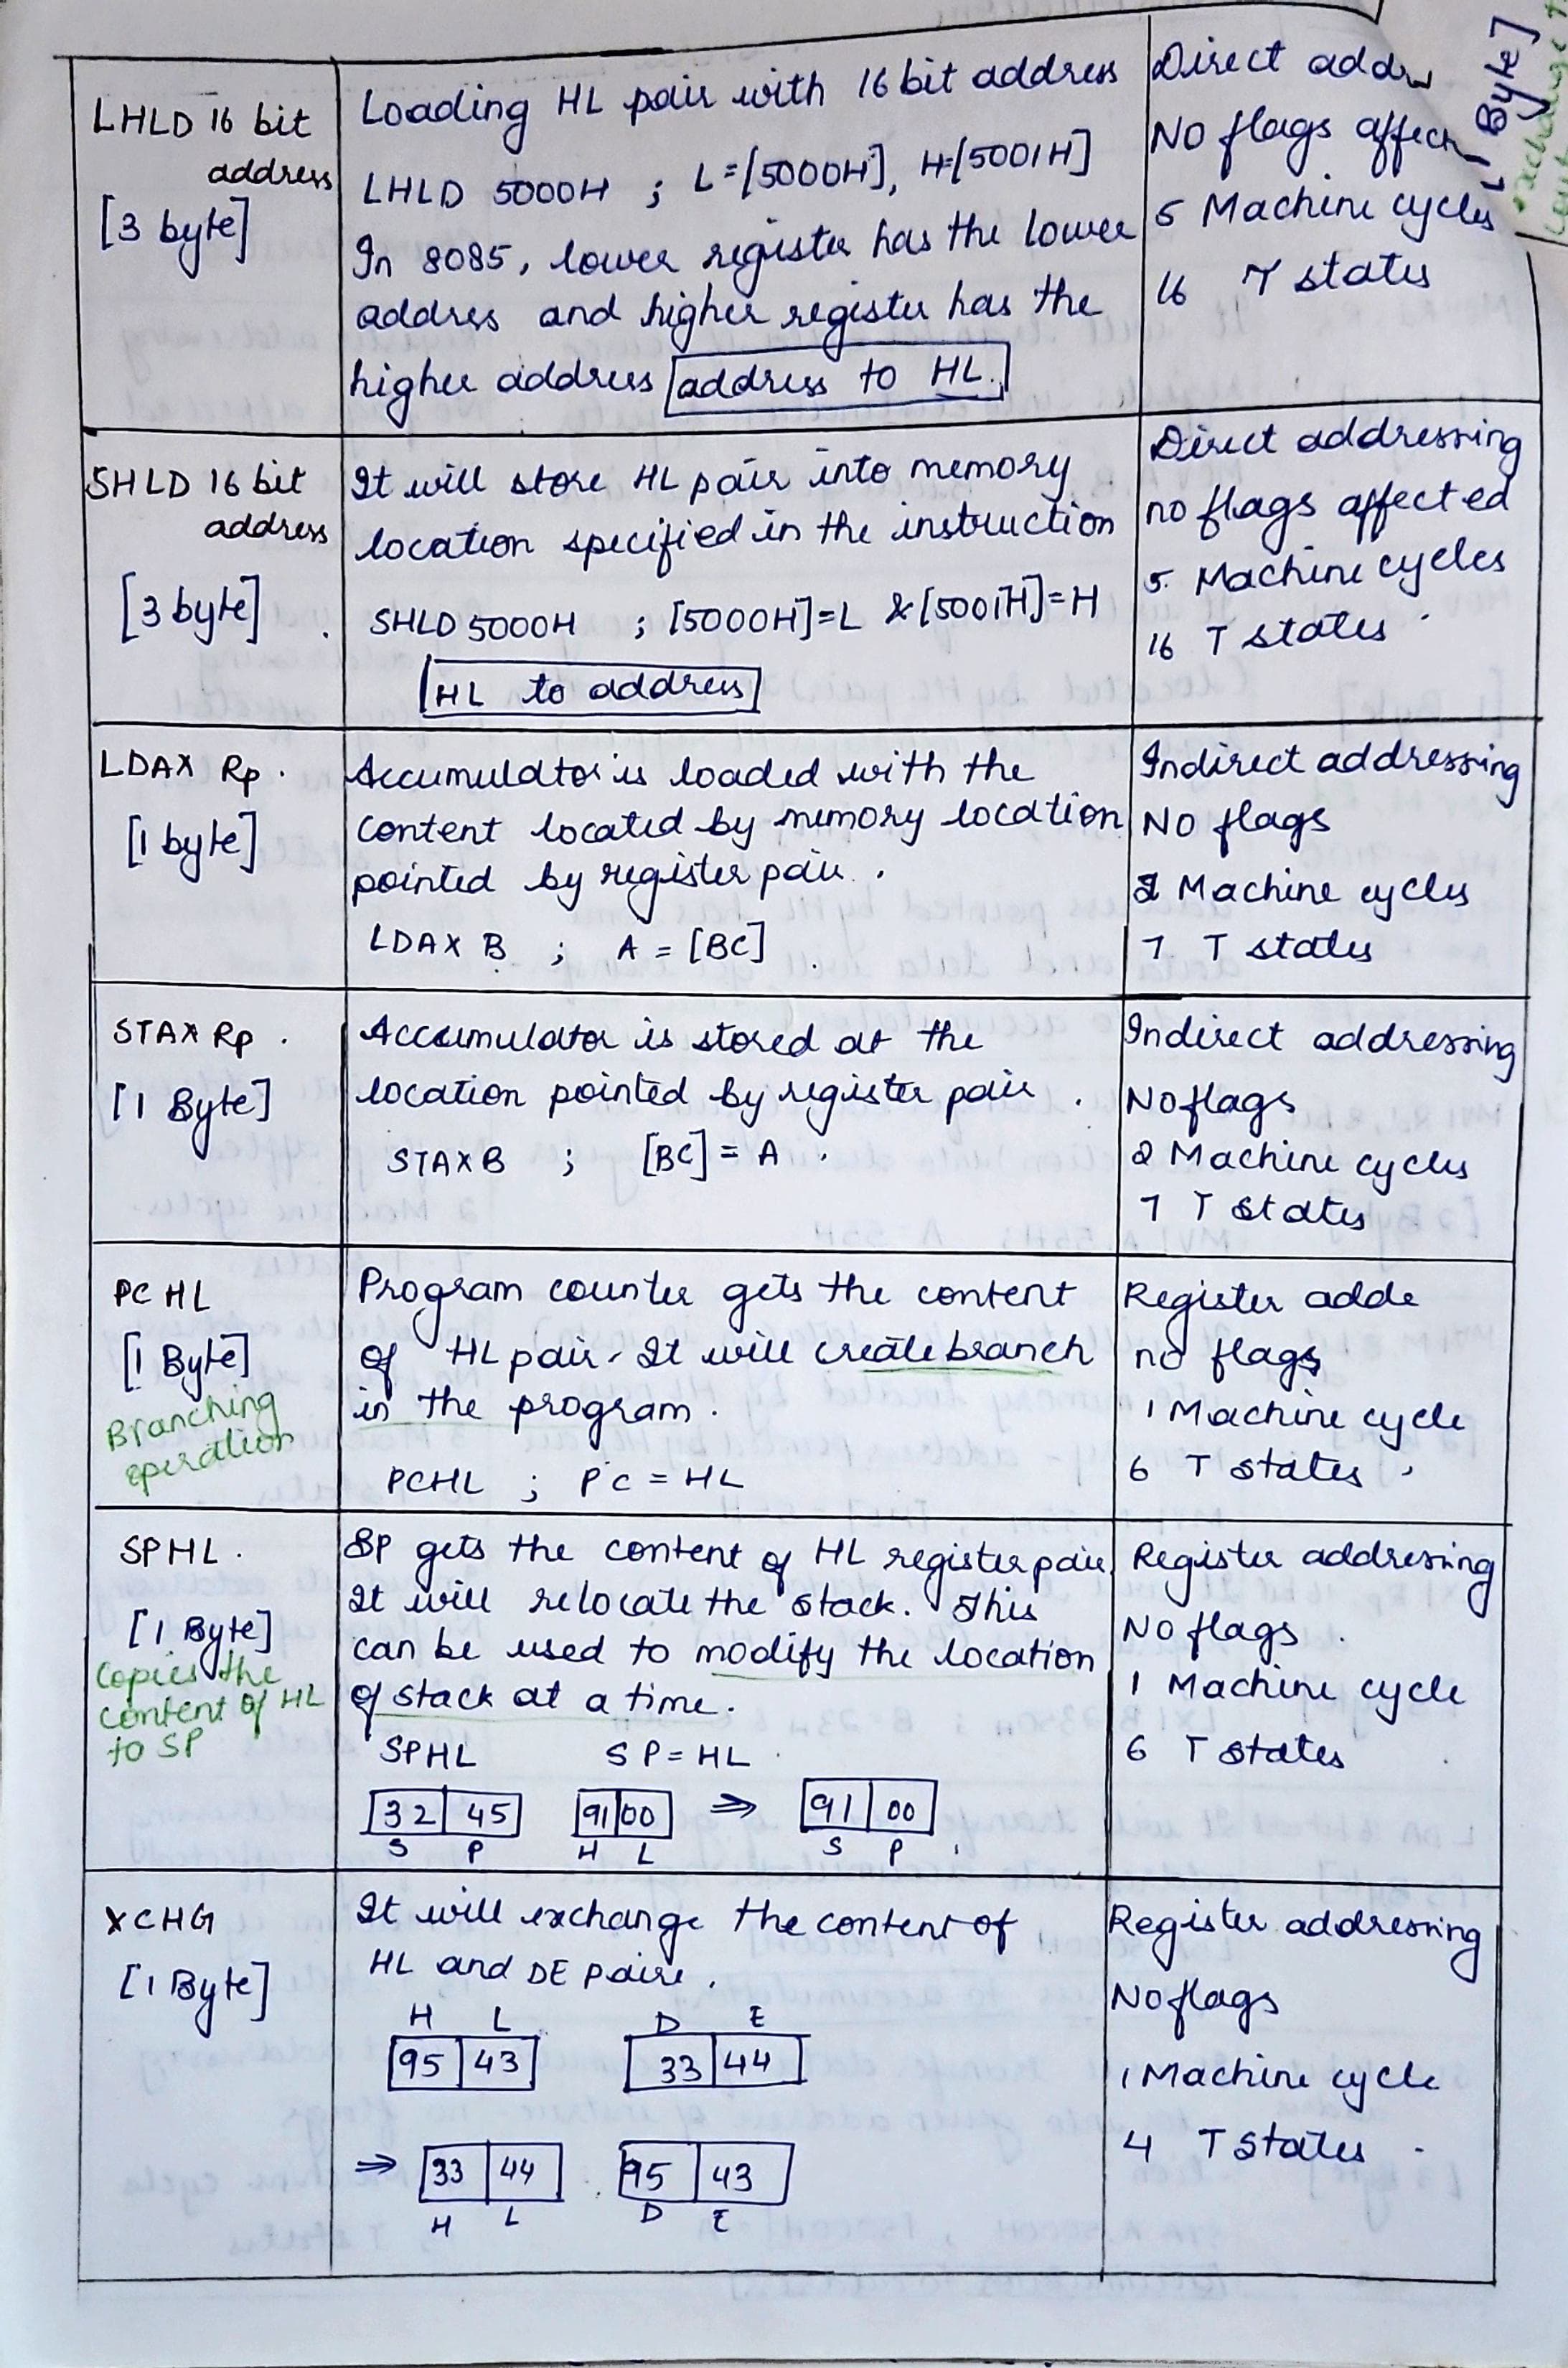 LHLD 16 bit
address
[3 byte]
Loading HL pair with 16 bit address
LHLD 5000H ; L=[5000H], H=[5001H]
In 8085, lower register has the lower
address and higher register has the
higher address address to HL.
Direct addr
NO flags affec
5 Machine cycles
16 T states
1 Byte]
SHLD 16 bit
address
[3 byte]
It will store HL pair into memory
location specified in the instruction
SHLD 5000H ; [5000H]=L & [5001H]=H
HL to address
Direct addressing
no flags affected
5 Machine cycles
16 T states
LDAX Rp.
[1 byte]
Accumulator is loaded with the
content located by memory location
pointed by register pair.
LDAX B ; A = [BC]
Indirect addressing
NO flags
2 Machine cycles
7 T states
STAX Rp.
[1 Byte]
Accumulator is stored at the
location pointed by register pair.
STAX B ; [BC] = A.
Indirect addressing
No flags
2 Machine cycles
7 T states
PCHL
[1 Byte]
Branching
operation
Program counter gets the content
of HL pair. It will create branch
in the program.
PCHL ; PC = HL
Register adde
no flags
1 Machine cycle
6 T states.
SPHL.
[1 Byte]
Copies the
content of HL
to SP
SP gets the content of HL register pair
It will relocate the stack. This
can be used to modify the location
of stack at a time.
SPHL SP = HL
32 45 91 00 ⇒ 91 00
S P H L S P
Register addressing
No flags.
1 Machine cycle
6 T states
XCHG
[1 Byte]
It will exchange the content of
HL and DE paire.
H L D E
95 43 33 44
⇒ 33 44 95 43
H L D E
Register addressing
No flags
1 Machine cycle
4 T states